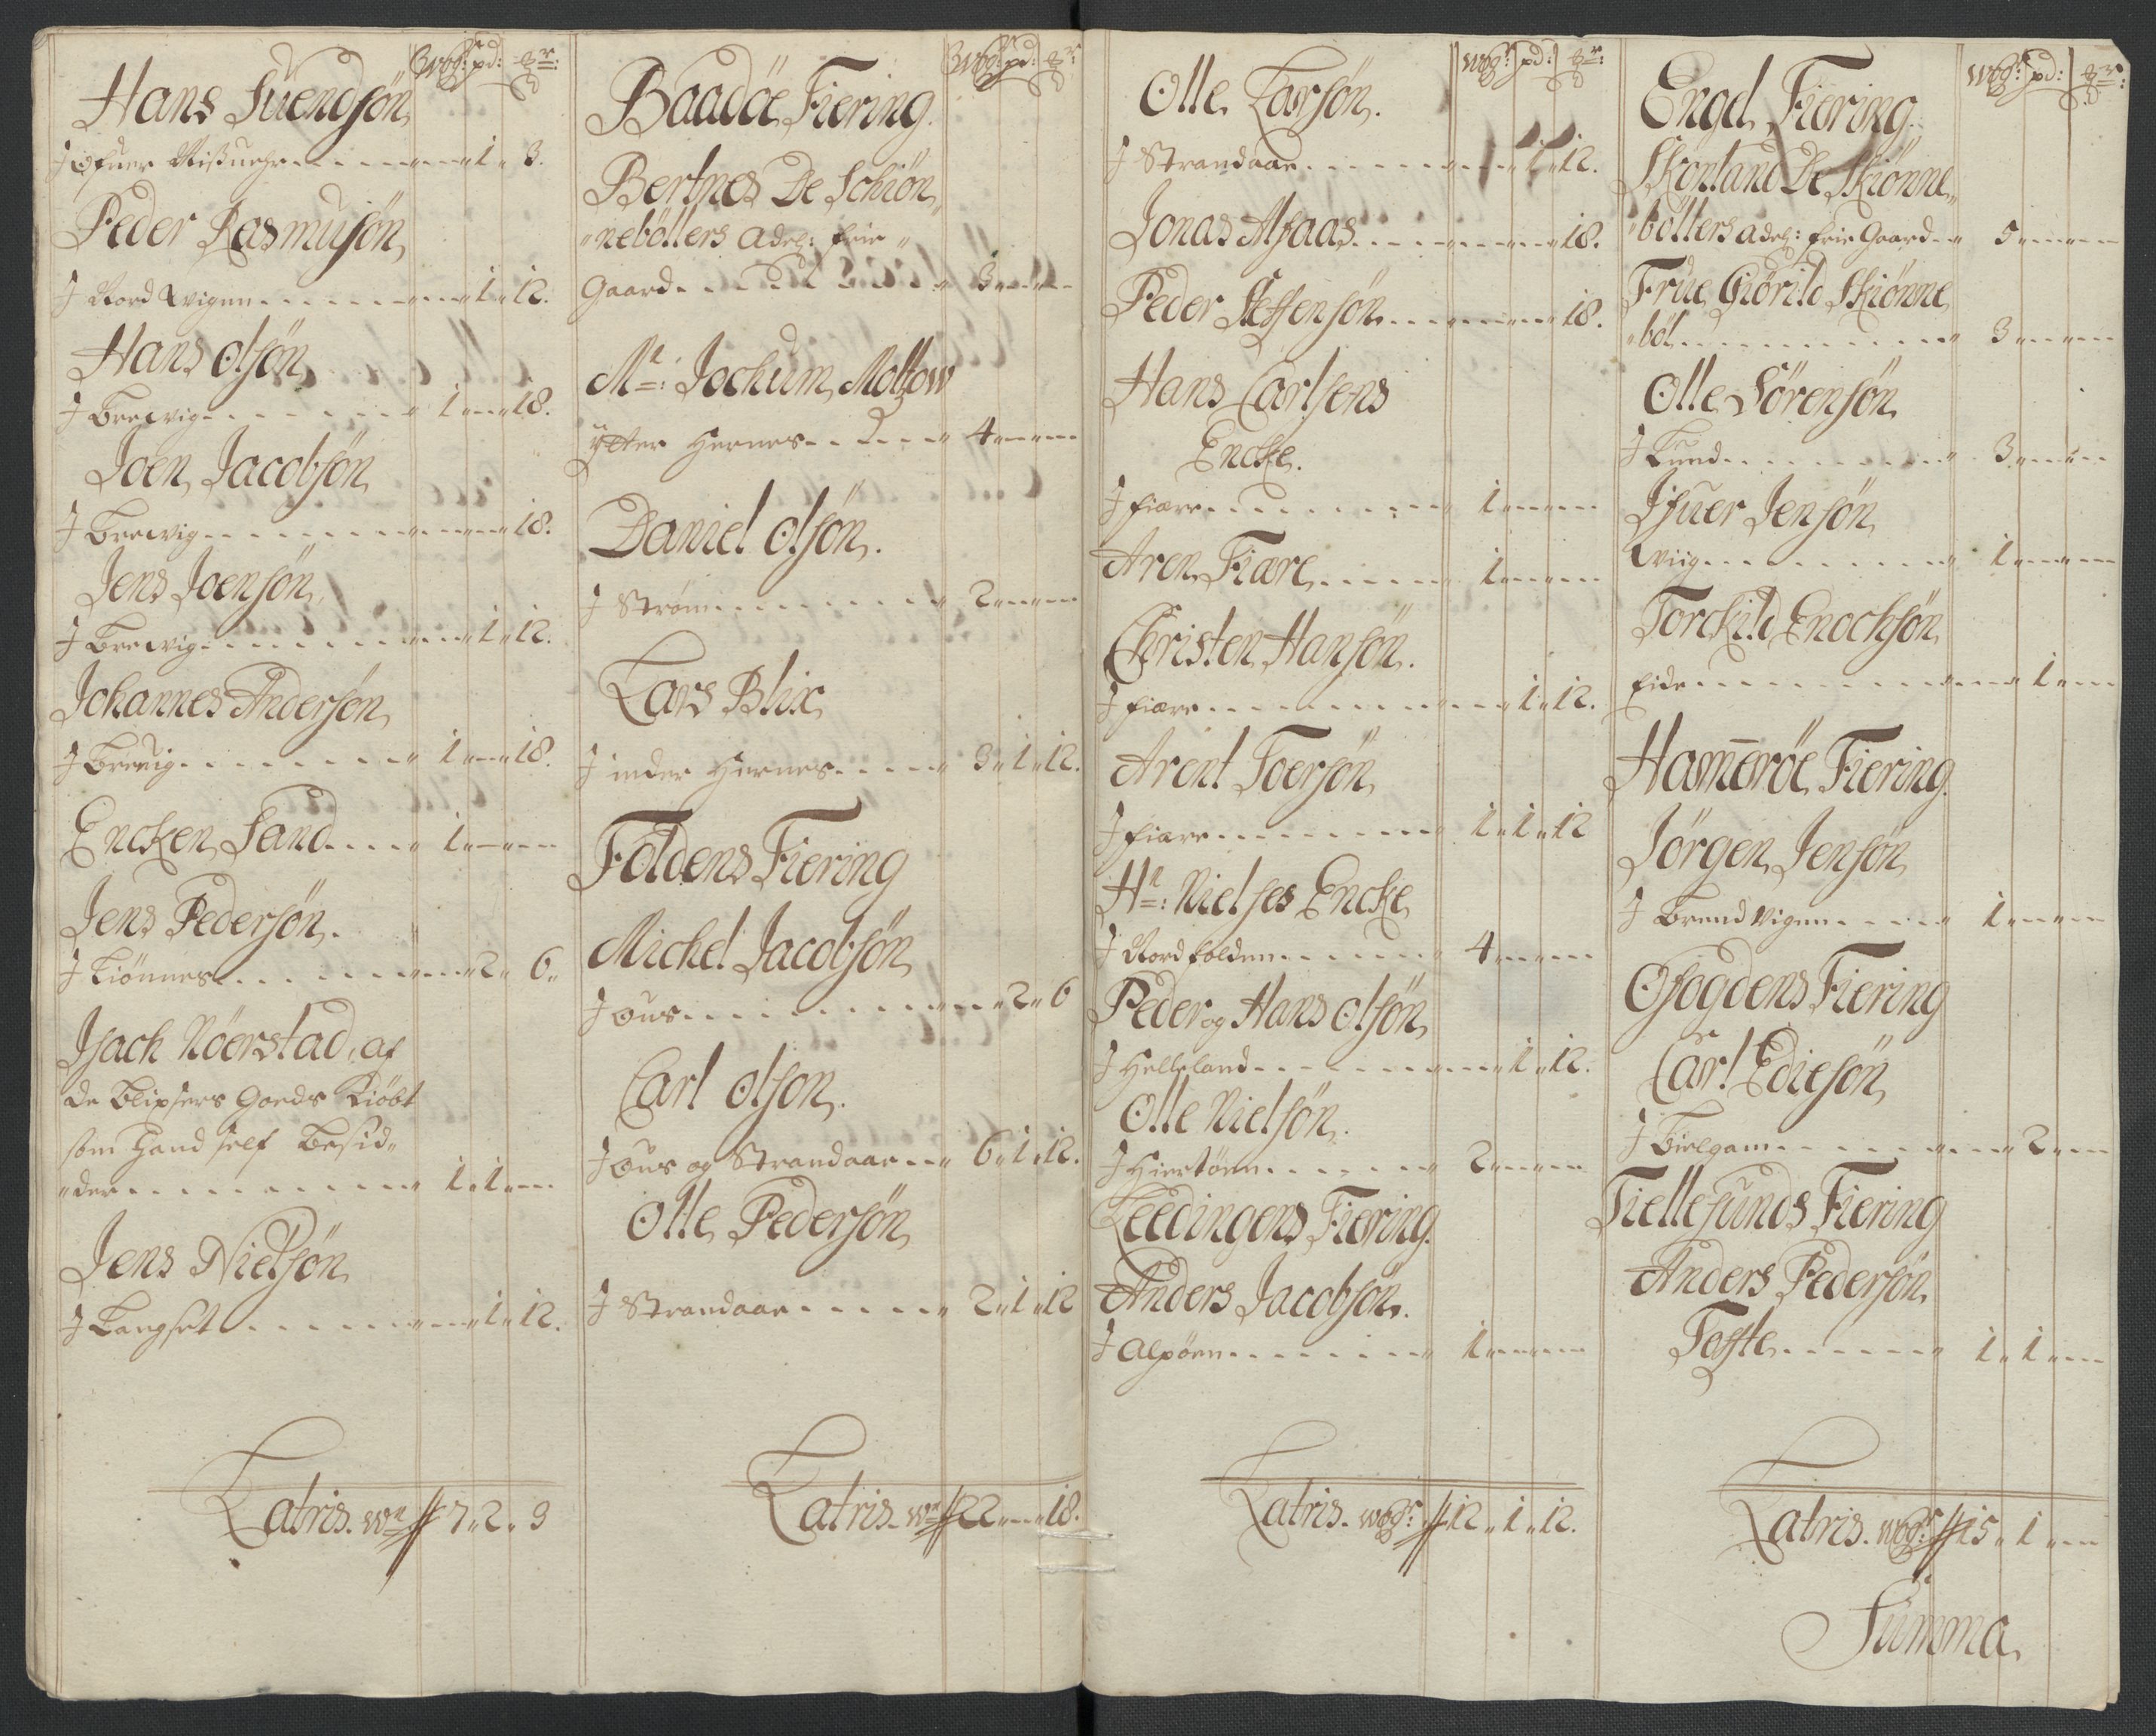 Wog: pd: Mr:
Hans Suendsøn
J Øfuer Nissuehr - - - - 1 " 3.
Peder Rasmusøn
J Nord Wigen - - - - 1 " 12.
Hans Olsøn
J Brewig - - - - 1 " - " 18.
Joen Jacobsøn
J Brewig - - - - 18.
Jens Joensøn
J Brewig - - - - 1 " 12.
Johannes Andersøn
J Brewig - - - - 1 " - " 18.
Encken Sand - - - 1 " - " -
Jens Pedersøn.
J Kiönnes - - - - 2 " 6 "
Jsach Nöerstad, af
de Blixsers Goeds Kiöbt
som hand self besid"
"der - - - - 1 " 1 " -
Jens Nielsøn
J Langset - - - - 1 " 12.
Latris. Wr 7 " 2 " 9
Wog: pd: Mr:
Baadöe Fiering.
Bertnes De Schiön"
"nebøllers adel: frie "
Gaard - - - - 3 " - " -
Mr: Jochum Moltzow
ÿtter Hernes - - - - 4 " - " -
Daniel Olsøn.
J Ström - - - - 2 " - " -
Lars Blix
J inder Hernes - - - - 3 " 1 " 12.
Foldens Fiering
Michel Jacobsøn
J Øus - - - - 2 " 6
Carl Olsøn.
J Øus og Strandaae - - 6 " 1 " 12.
Olle Pedersøn
J Strandaae - - - - 2 " 1 " 12
Latris. Wr 22 " - " 18.
Wogr: pd: Mr:
Olle Larsøn.
J Strandaae - - - - 1 " 12.
Jonas Alsaas - - - - 18.
Peder Steffensøn - - - - 18.
Hans Carlsens
Encke.
J fiære - - - - 1 " - " -
Aren Fiære - - - - 1 " - " -
Christen Hansøn.
J fiære - - - - 1 " 12.
Arent Toersøn
J fiære - - - - 1 " 1 " 12
Hr: Nielses Encke
J Nord folden - - - - 4 " - " -
Peder og Hans Olsøn
J Helleland - - - - 1 " 12.
Olle Nielsøn.
J Hiertöen - - - - 2 " - " -
Leedingens Fiering.
Anders Jacobsøn.
J Alpöen - - - - 1 " - " -
Latris. Wogr: 12 " 1 " 12.
Wogr: pd: Mr:
Engel. Fiering.
Skonland De Skiönne"
"böllers adel: frie Gaard - " 5 " - " -
Frue Giörild Skiönne
"böl - - - - 3 " - " -
Olle Sörensøn
J Lund - - - - 3 " - " -
Jfuer Jensøn
Wiig - - - - 1 " - " -
Torckild Enochsøn
Eide - - - - 1 " -
Hamerøe Fiering.
Jörgen Jensøn
J Brendvigen - - - - 1 " - " -
Ofogdens Fiering
Carl Ediesøn
J Bielgam - - - - 2 " -
Tiellesunds Fiering
Anders Pedersøn
Tofte - - - - 1 " 1 " -
Latris. Wogr: 15 " 1 " -
Summa